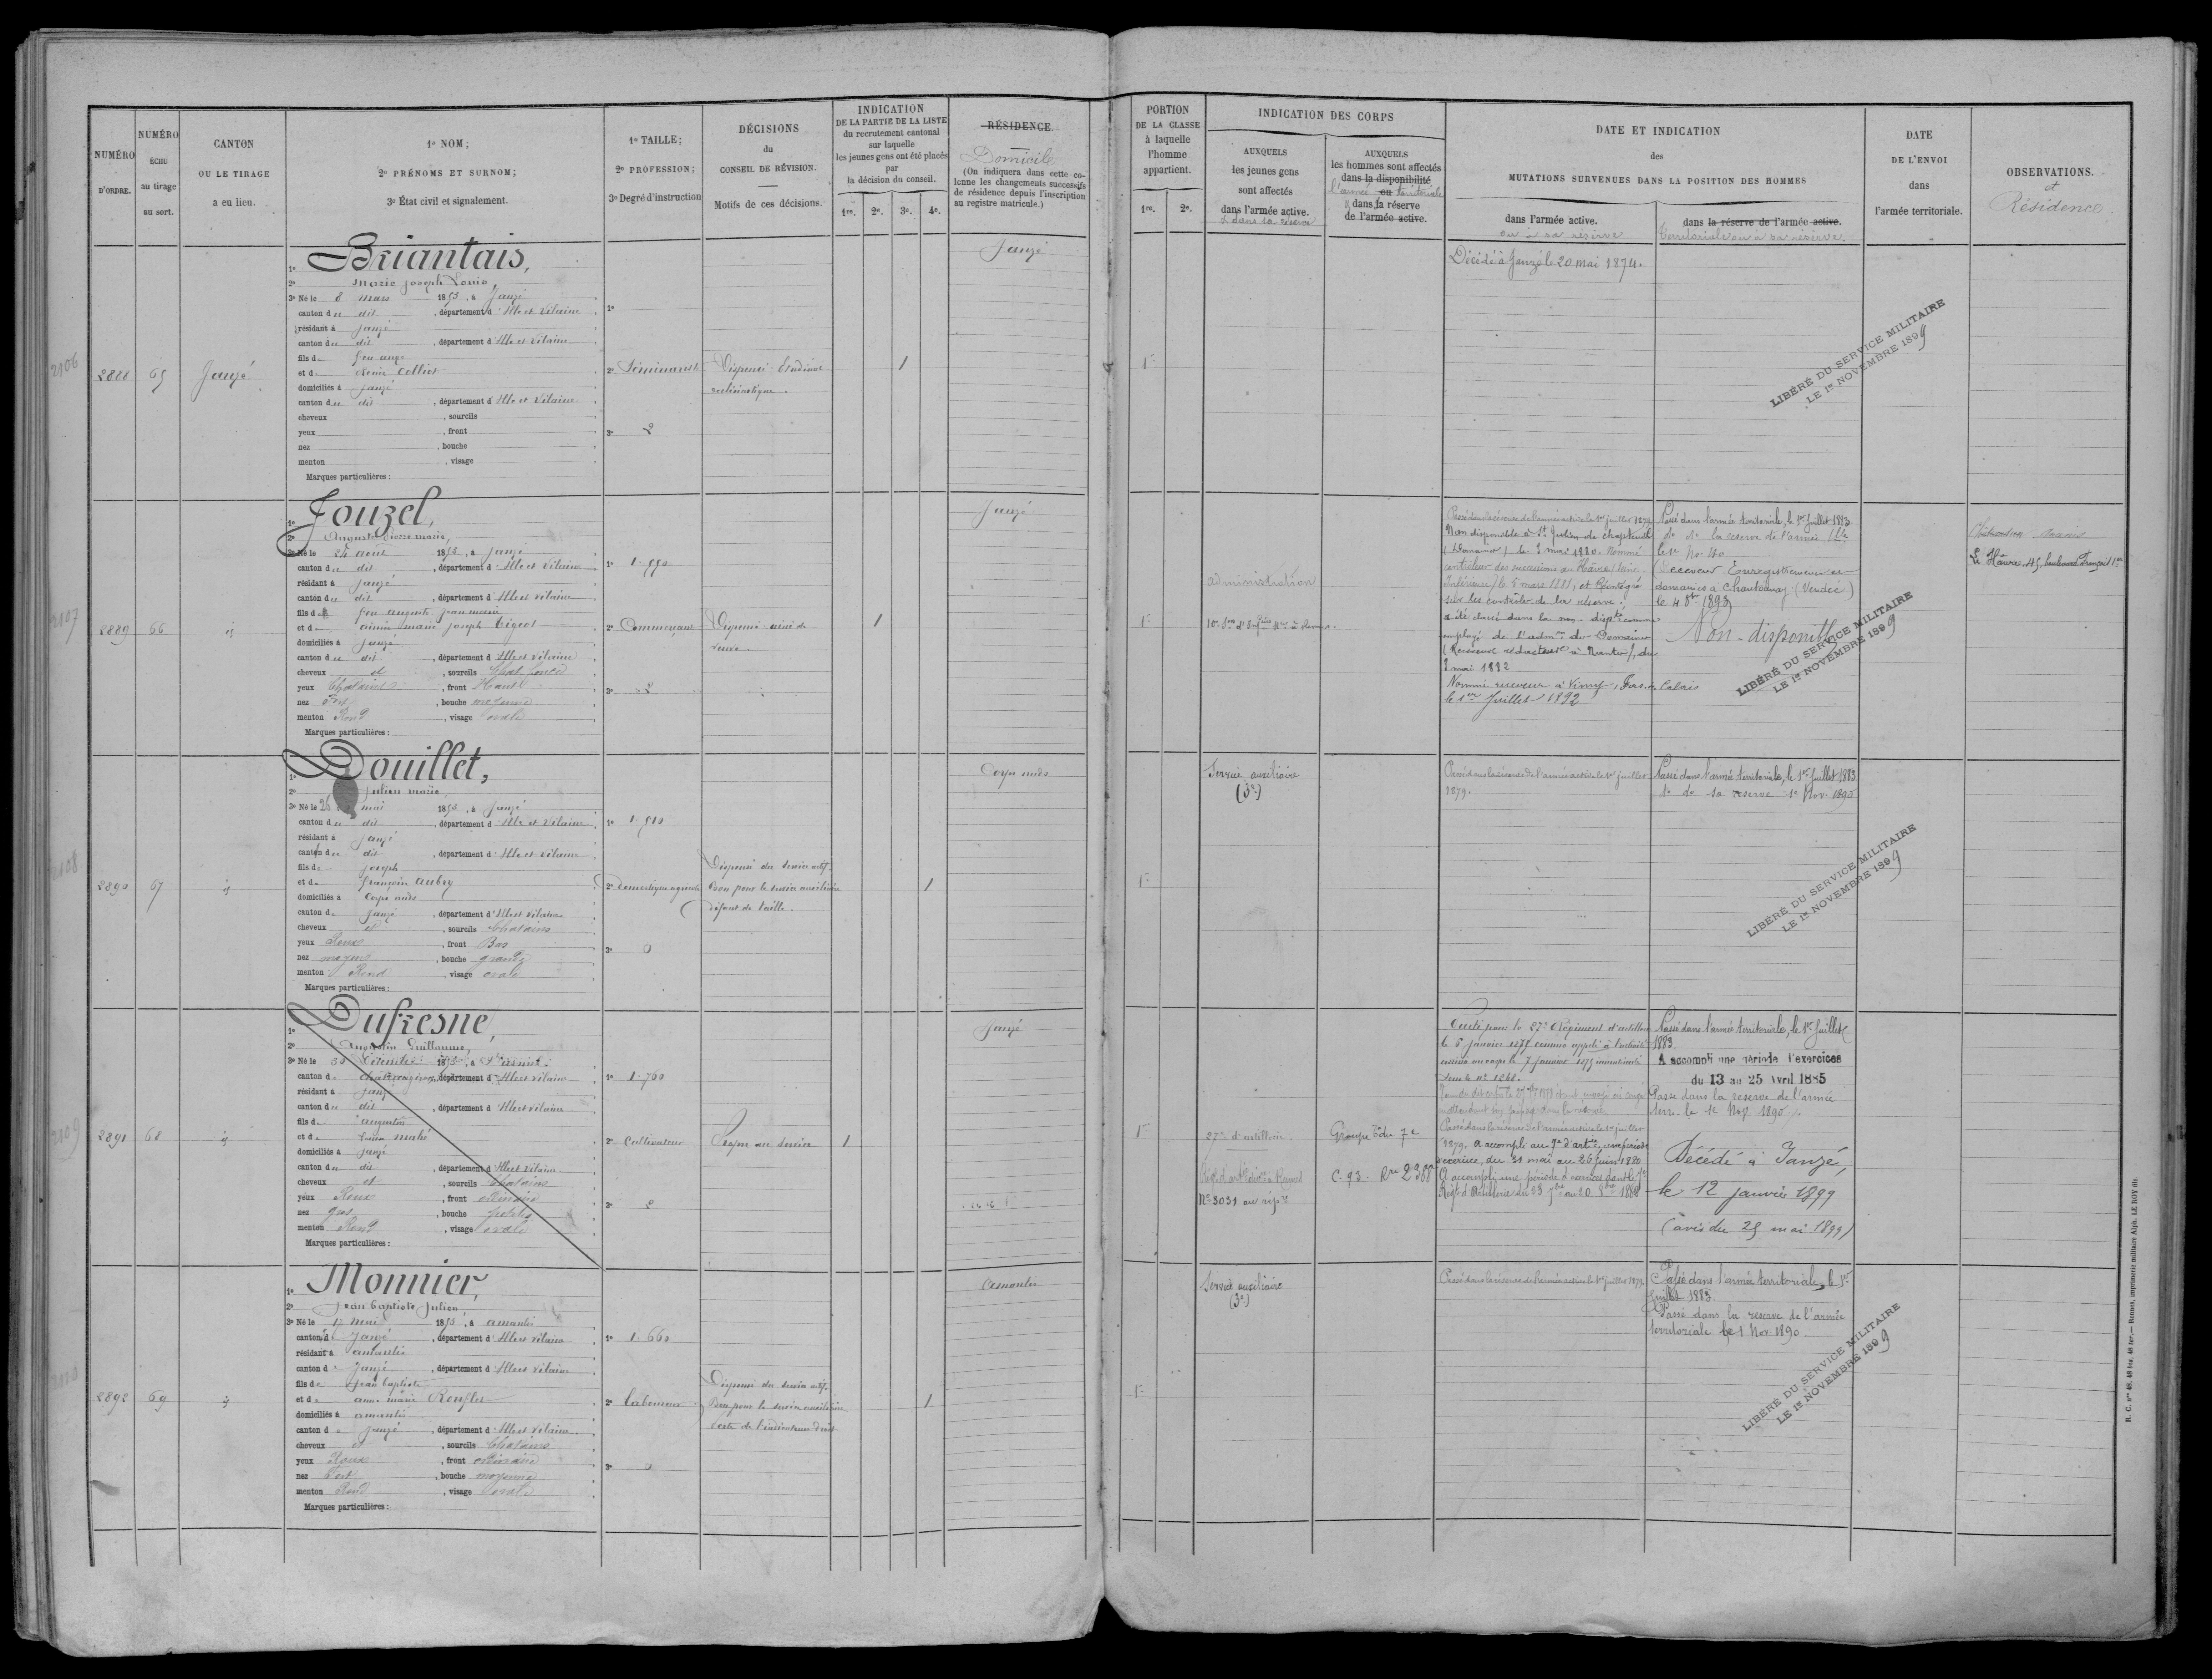 NUMÉRO D'ORDRE.
NUMÉRO ÉCHU au tirage au sort.
CANTON OU LE TIRAGE a eu lieu.
1º NOM;
2º PRÉNOMS ET SURNOM;
3º État civil et signalement.
1º TAILLE;
2º PROFESSION;
3º Degré d'instruction
DÉCISIONS du CONSEIL DE RÉVISION.
Motifs de ces décisions.
INDICATION
DE LA PARTIE DE LA LISTE
du recrutement cantonal
sur laquelle
les jeunes gens ont été placés
par
la décision du conseil.
1re. 2e. 3e. 4e.
RÉSIDENCE.
Domicile
(On indiquera dans cette colonne les changements successifs de résidence depuis l'inscription au registre matricule.)
PORTION
DE LA CLASSE
à laquelle
l'homme
appartient.
1re. 2e.
INDICATION DES CORPS
AUXQUELS
les jeunes gens
sont affectés
dans l'armée active.
& dans la réserve
AUXQUELS
les hommes sont affectés
dans la disponibilité
ou
l'armée territoriale
& dans la réserve
de l'armée active.
DATE ET INDICATION
des
MUTATIONS SURVENUES DANS LA POSITION DES HOMMES
dans l'armée active.
ou à sa réserve
dans la réserve de l'armée active.
territoriale ou à sa réserve.
DATE
DE L'ENVOI
dans
l'armée territoriale.
OBSERVATIONS.
et
Résidence.
2106
2888 65 Janzé
1º Briantais,
2º Marie Joseph Louis,
3º Né le 8 mars 1853, à Janzé
canton du dit, département d'Ille et Vilaine
résidant à Janzé
canton du dit, département d'Ille et Vilaine
fils de feu ange
et de Colliot
domiciliés à Janzé
canton du dit, département d'Ille et Vilaine
cheveux, sourcils
yeux, front
nez, bouche
menton, visage
Marques particulières:
1º
2º Séminariste
3º 2
Dispensé Etudiant
ecclésiastique.
1
Janzé
1re
Décédé à Janzé le 20 mai 1874.
LIBÉRÉ DU SERVICE MILITAIRE
LE 1er NOVEMBRE 1899
2107
2889 66 id
1º Jouzel,
2º Auguste Pierre Marie,
3º Né le 24 août 1853, à Janzé
canton du dit, département d'Ille et Vilaine
résidant à Janzé
canton du dit, département d'Ille et Vilaine
fils de feu auguste jean marie
et de aimée marie joseph Tigeot
domiciliés à Janzé
canton du dit, département d'Ille et Vilaine
cheveux et, sourcils Chat foncé
yeux Chatains, front Haut
nez Fort, bouche moyenne
menton Rond, visage ovale
Marques particulières:
1º 1.550
2º Commerçant
3º 2
Dispensé aîné de
veuve.
1
Janzé
1re
administration
Passé dans la réserve de l'armée active le 1er juillet 1879.
Non disponible à St Julien de Chapteuil
le 5 mai 1880. Nommé
contrôleur des successions au Hâvre (Seine
Inférieure) le 5 mars 1881, et Réintégré
sur les contrôles de la réserve.
a été classé dans la non-dispté comme
employé de l'admon des Domaines
(Receveur rédacteur à Nantes), du
mai 1882
Nommé receveur à Vimy, Pas-de-Calais
le 1er Juillet 1892
Passé dans l'armée territoriale, le 1er Juillet 1883.
do de la réserve de l'armée
le 1er Nov 90
Receveur Enregistrement et
domaines à Chantonnay (Vendée)
le 4 8bre 1893
Non-disponible
LIBÉRÉ DU SERVICE MILITAIRE
LE 1er NOVEMBRE 1899
Le Hâvre, 45, boulevard François 1er
2108
2890 67 id
1º Douillet,
2º Julien Marie,
3º Né le 26 mai 1853, à Janzé
canton du dit, département d'Ille et Vilaine
résidant à Janzé
canton du dit, département d'Ille et Vilaine
fils de joseph
et de françoise Aubry
domiciliés à Corps nuds
canton de Janzé, département d'Ille et Vilaine
cheveux et, sourcils Chatains
yeux Roux, front Bas
nez moyen, bouche grande
menton Rond, visage ovale
Marques particulières:
1º 1.510
2º Domestique agricole
3º 0
Dispensé du service actif.
Bon pour le service auxiliaire
défaut de taille.
1
Corps nuds
1re
Service auxiliaire
(3e)
Passé dans la réserve de l'armée active le 1er juillet
1879.
Passé dans l'armée territoriale, le 1er Juillet 1883
do de sa réserve 1er Nov. 1890
LIBÉRÉ DU SERVICE MILITAIRE
LE 1er NOVEMBRE 1899
2109
2891 68 id
1º Dufresne,
2º Augustin Guillaume,
3º Né le 30
canton de, département d'Ille et Vilaine
résidant à Janzé
canton du dit, département d'Ille et Vilaine
fils de augustin
et de Mahé
domiciliés à Janzé
canton du dit, département d'Ille et Vilaine
cheveux et, sourcils Chatains
yeux Roux, front ordinaire
nez gros, bouche petite
menton Rond, visage ovale
Marques particulières:
1º 1.760
2º Cultivateur
3º 2
Propre au service
1
Janzé
1re
27e d'artillerie.
No 3031 au répre
Groupe 7e
C. 93. Rre 2368
Parti pour le 27e Régiment d'artillerie
le 5 janvier 1875 comme appelé à l'activité
arrivé au corps le 7 janvier 1875 immatriculé
sous le no 1262.
Passé dans la réserve de l'armée active le 1er juillet
1879. a accompli au 7e d'artie, une période
d'exercice, du 31 mai au 26 juin 1880
A accompli une période d'exercices dans le 7e
Régt d'Artillerie du 23 7bre au 20 8bre 1882
Passé dans l'armée territoriale, le 1er Juillet
1883.
A accompli une période d'exercices
du 13 au 25 Avril 1885
Passé dans la réserve de l'armée
terre le 1er Nov. 1890.
Décédé à Janzé,
le 12 janvier 1899
(avis du 25 mai 1899)
2110
2892 69 id
1º Monnier,
2º Jean Baptiste Julien,
3º Né le 17 mai 1853, à amanlis
canton de Janzé, département d'Ille et Vilaine
résidant à amanlis
canton de Janzé, département d'Ille et Vilaine
fils de Jean baptiste
et de anne marie Renflet
domiciliés à amanlis
canton de Janzé, département d'Ille et Vilaine
cheveux et, sourcils Chatains
yeux Roux, front ordinaire
nez Fort, bouche moyenne
menton Rond, visage ovale
Marques particulières:
1º 1.660
2º laboureur
3º 0
Dispensé du service actif.
Bon pour le service auxiliaire
perte de l'indicateur droit
1
amanlis
1re
Service auxiliaire
(3e)
Passé dans la réserve de l'armée active le 1er juillet 1879.
Passé dans l'armée territoriale, le 1er
Juillet 1883.
Passé dans la réserve de l'armée
territoriale le 1 Nov 1890.
LIBÉRÉ DU SERVICE MILITAIRE
LE 1er NOVEMBRE 1899
R. C. nos 48, 48 bis, 48 ter.— Rennes, imprimerie militaire Alph. LE ROY fils.